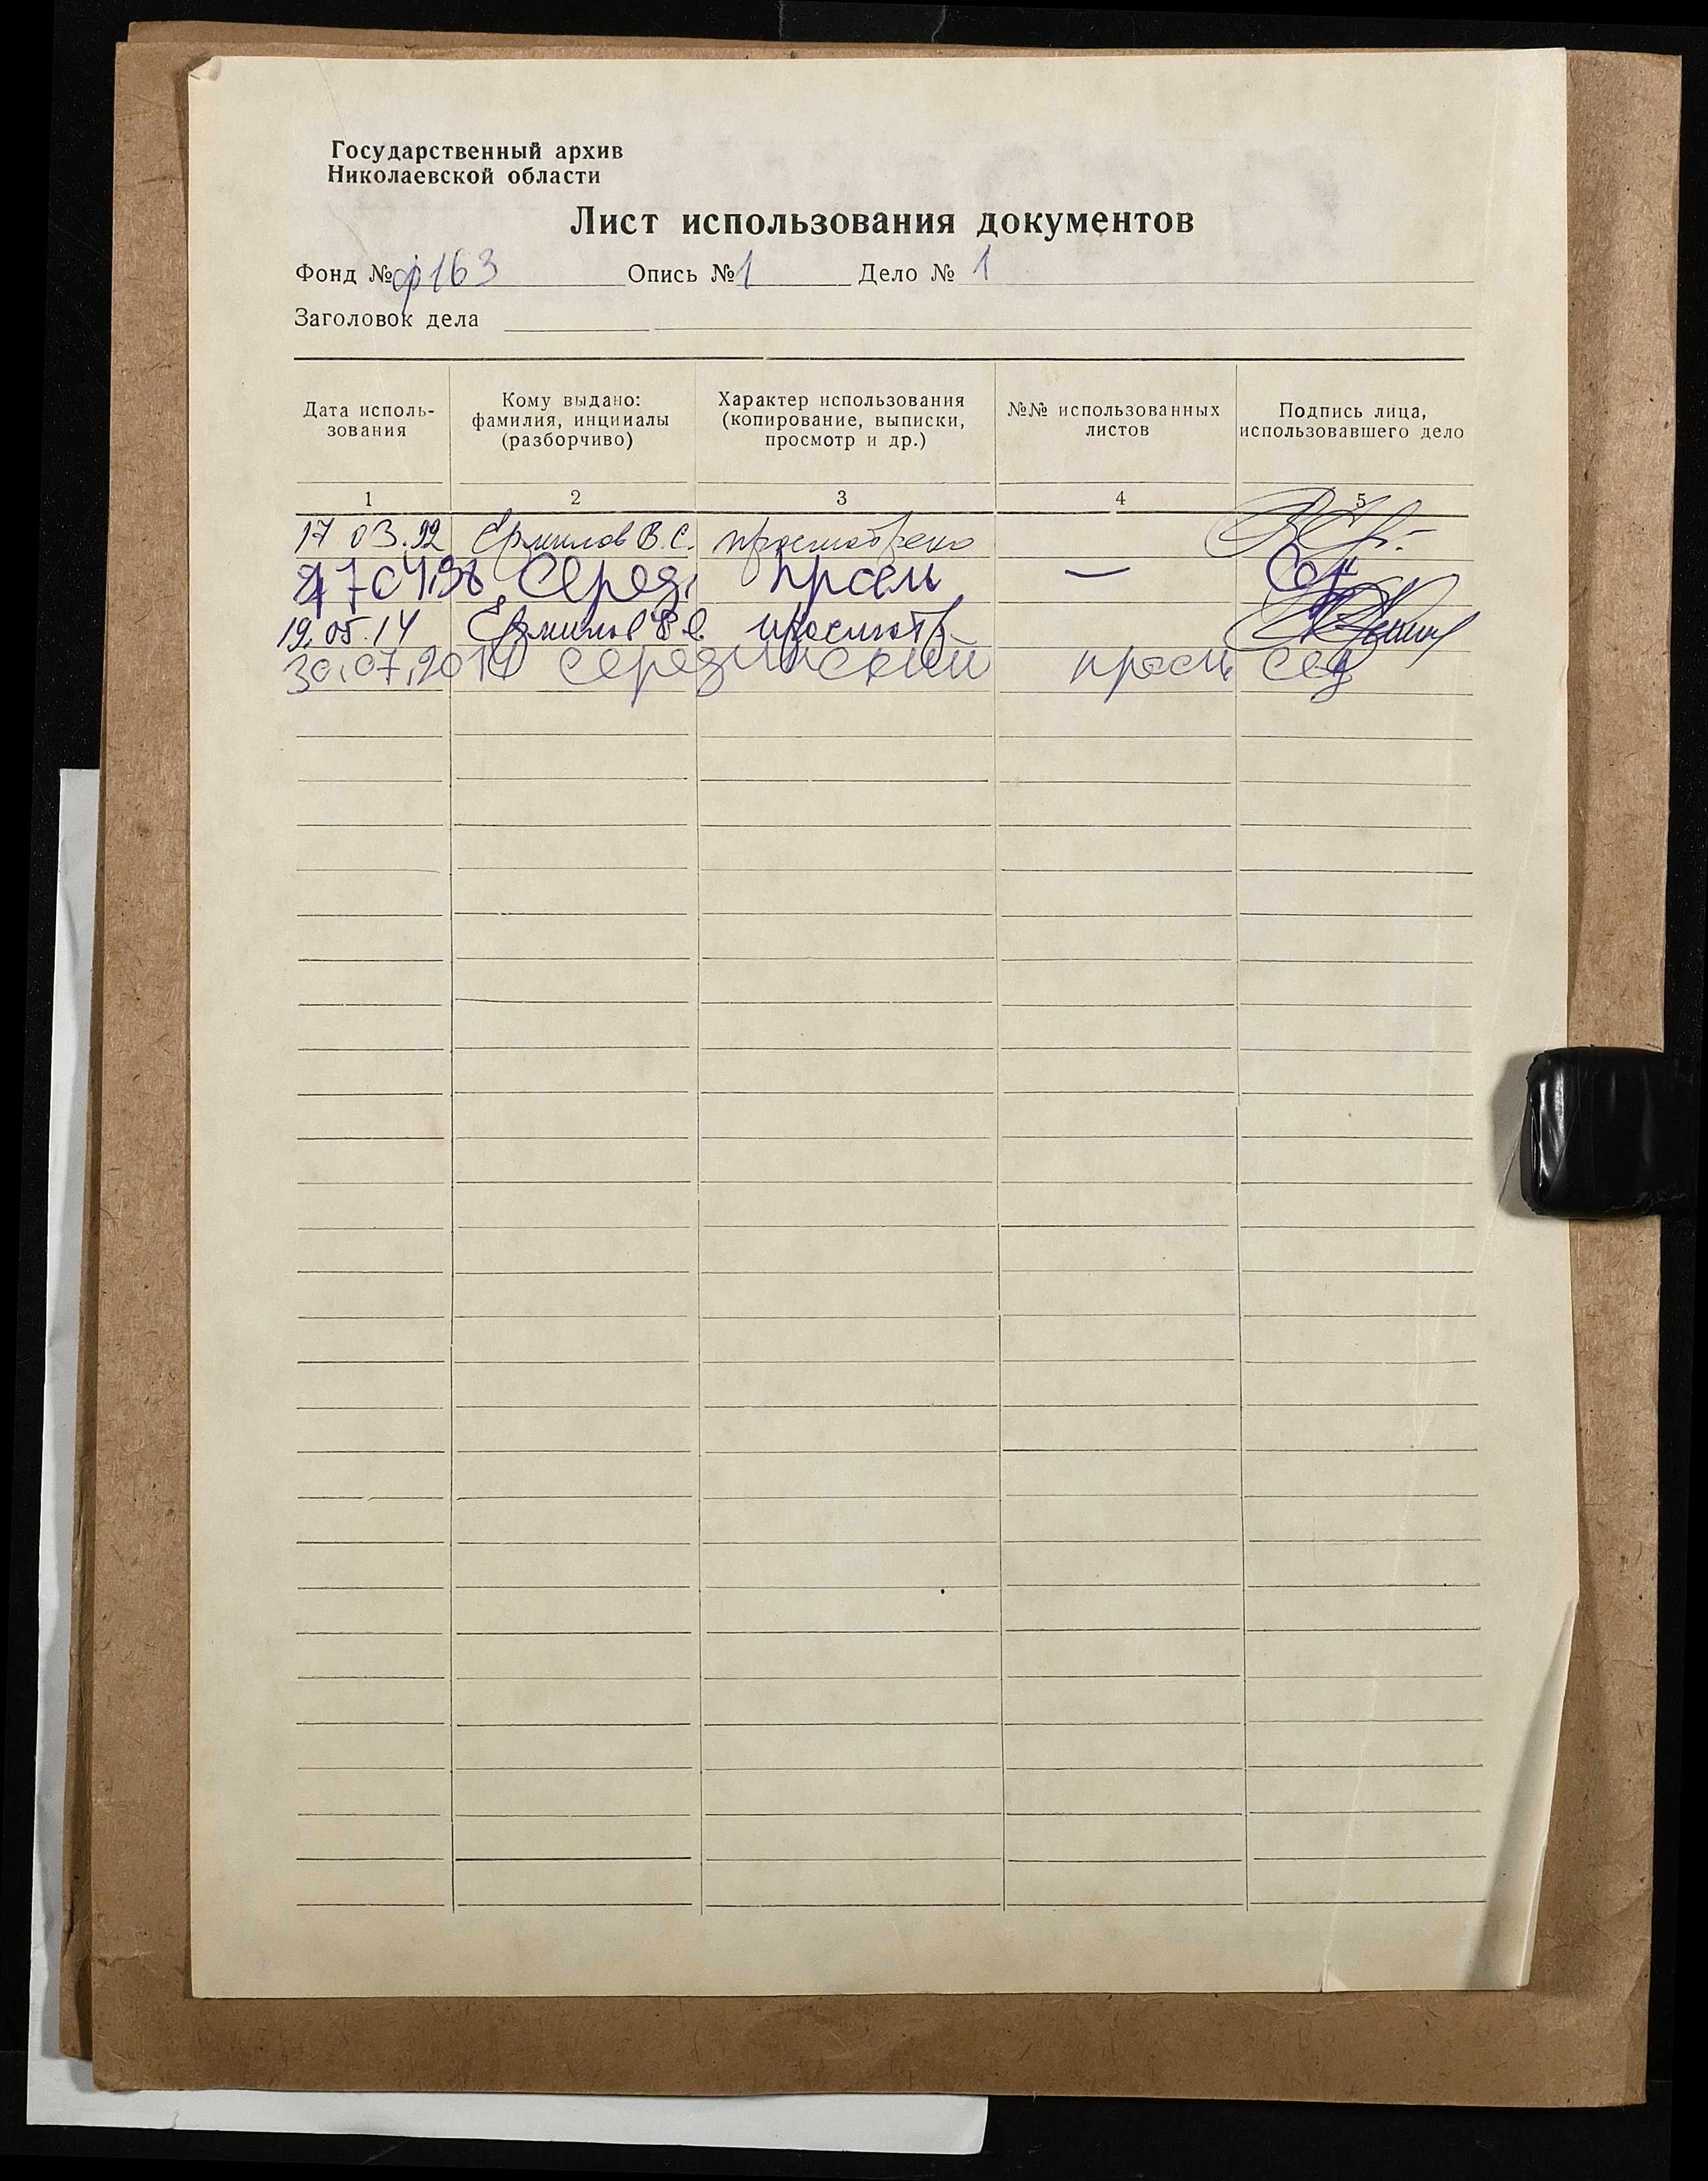 Государственный архив
Николаевской области
Лист использования документов
Фонд № ф163 Опись № 1 Дело № 1
Заголовок дела
Дата исполь-
зования
Кому выдано:
фамилия, инциналы
(разборчиво)
Характер использования
(копирование, выписки,
просмотр и др.)
№№ использованных
листов
Подпись лица,
использовавшего дело
1 2 3 4 5
17 03.92 Ермилов В.С. просмотрено
Серед. просм —
19.05.14 Ермилов просмотр
30.07.2014 Серединский просм